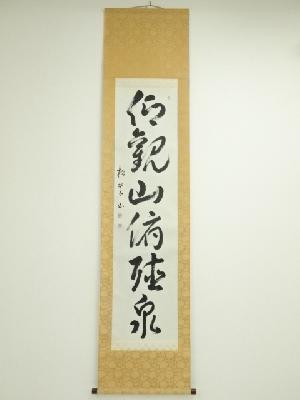 仰觀山俯聴泉